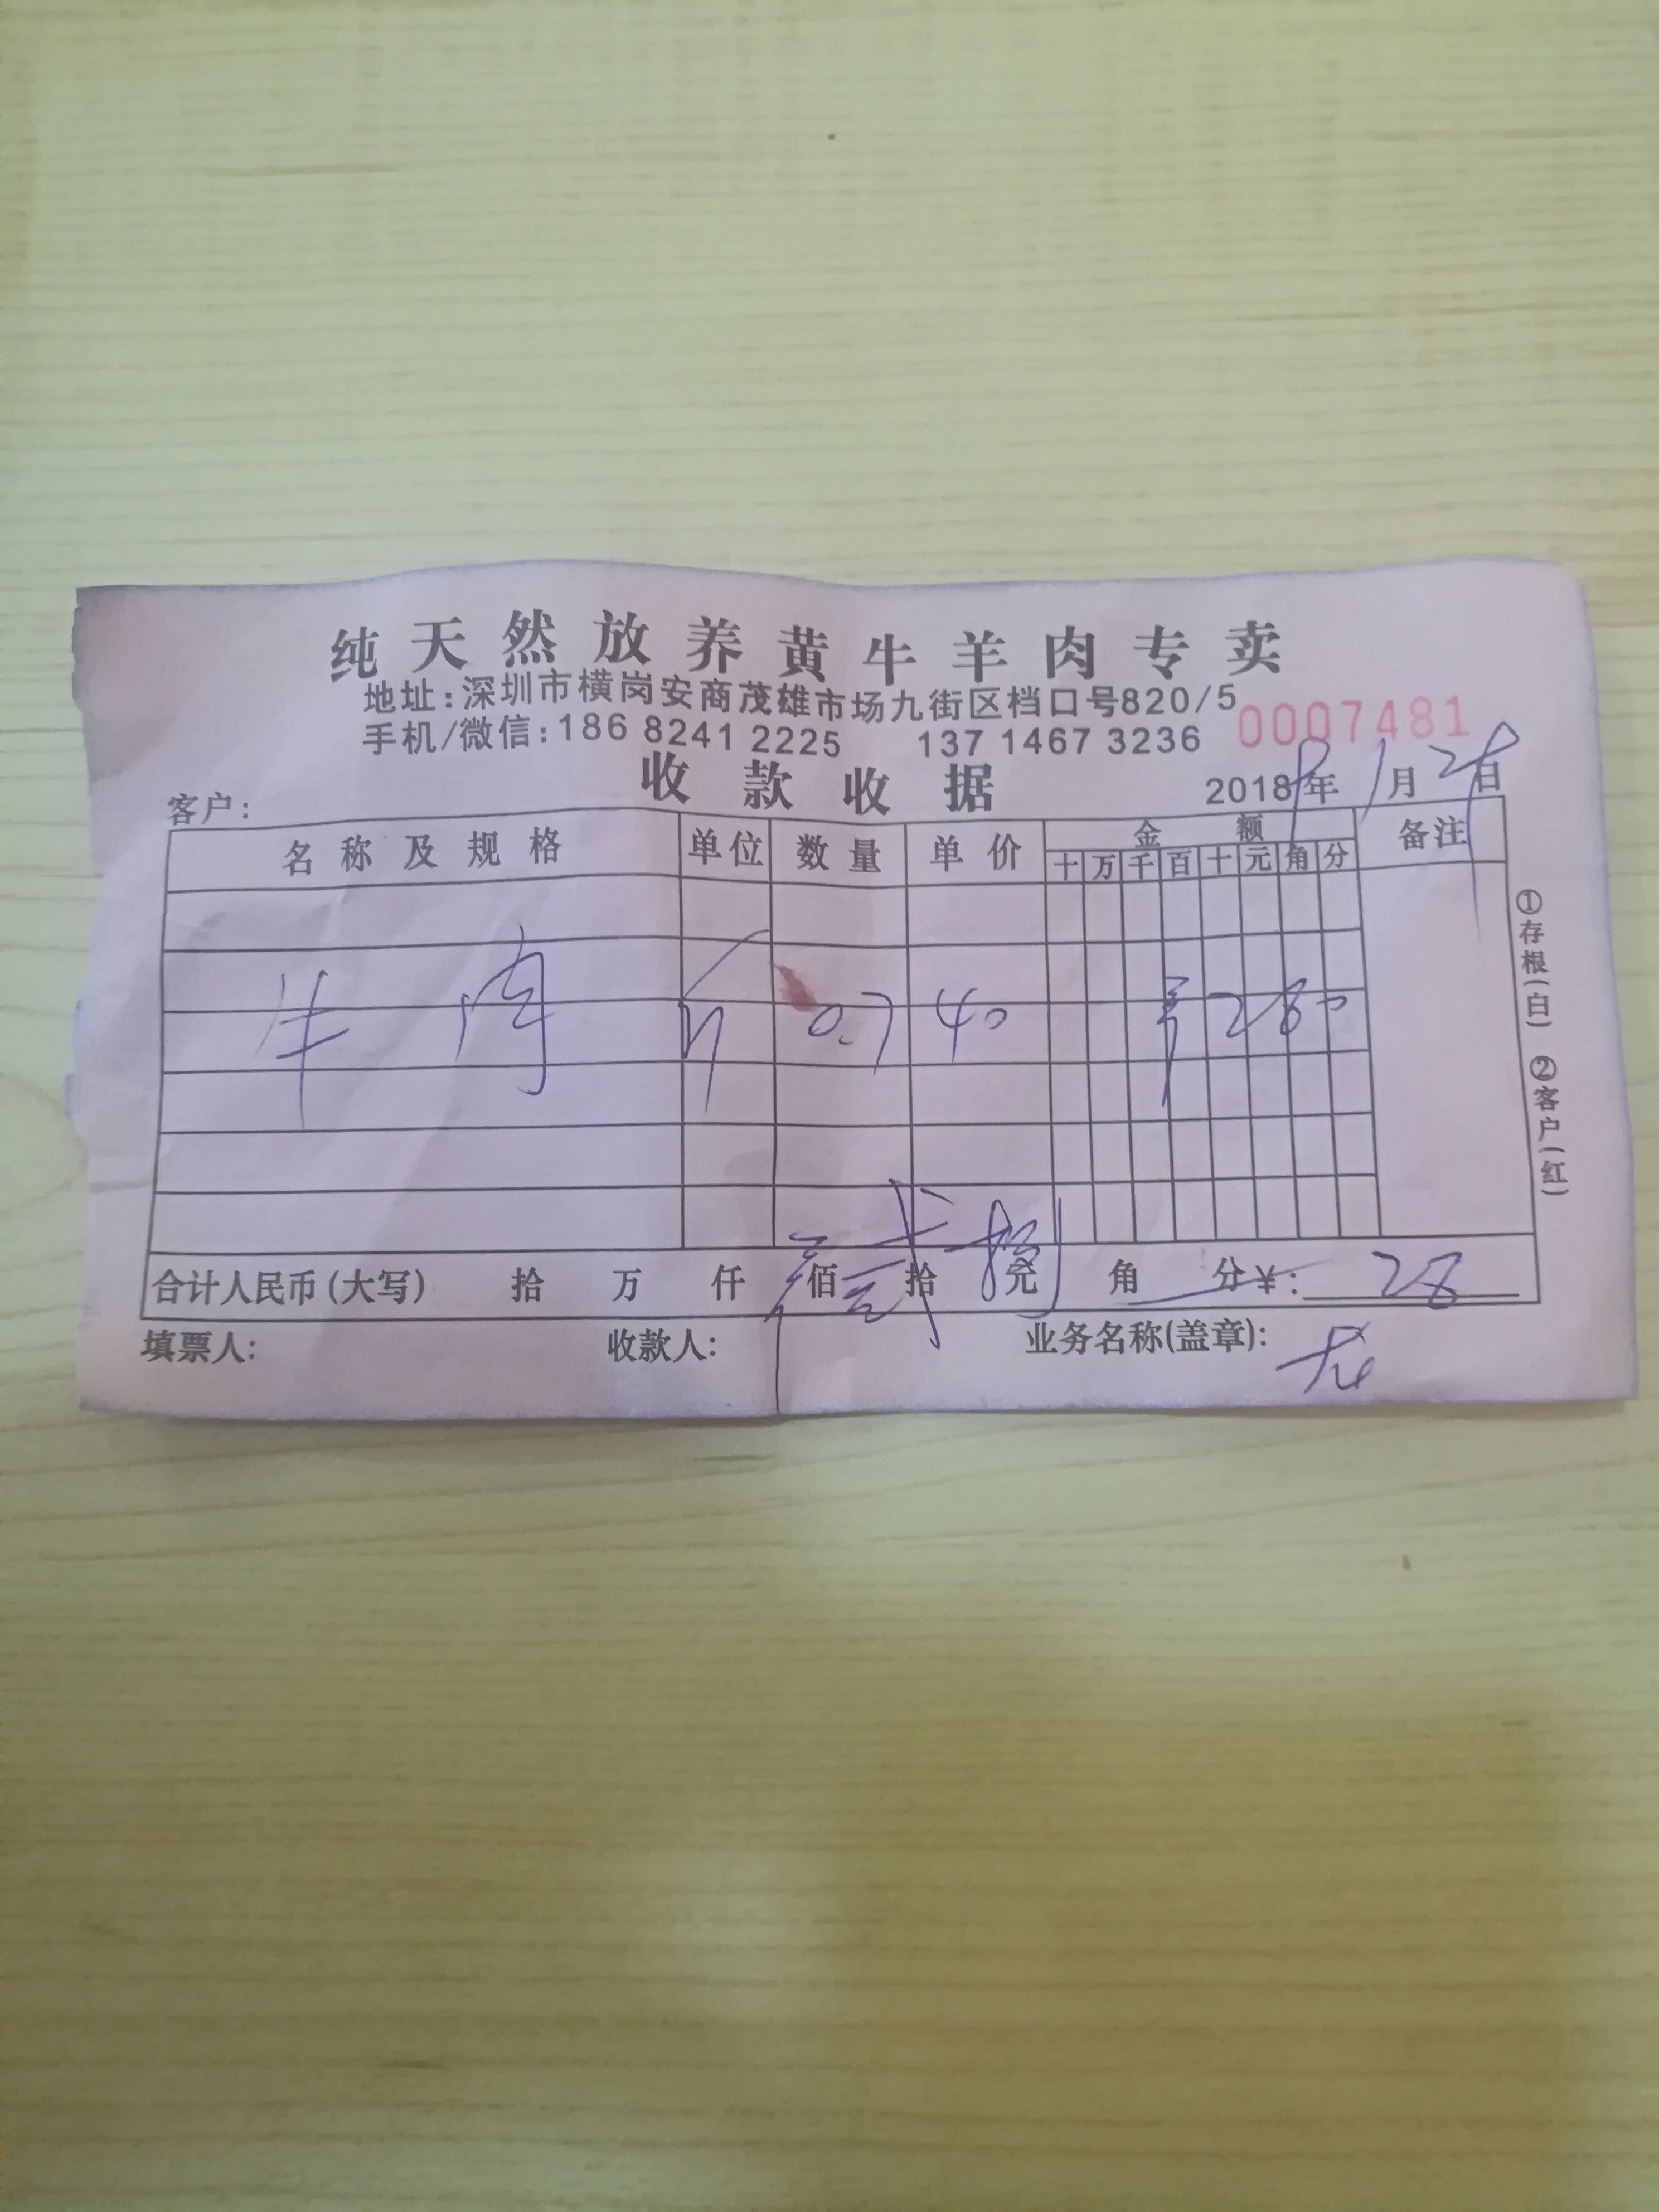 纯天然放养黄牛羊肉专卖
地址:深圳市横岗安商茂雄市场九街区档口号820/5
手机/微信:186 8241 2225 137 1467 3236
0007481
收款收据
2018年 1月 28日
客户:
名称及规格 单位 数量 单价 金额 备注
十 万 千 百 十 元 角 分
牛肉 斤 0.7 40 ¥ 2 8 0
①存根(白) ②客户(红)
合计人民币(大写) 拾 万 仟 佰 贰 拾 捌 元 角 分 ¥: 28
填票人: 收款人: 业务名称(盖章):